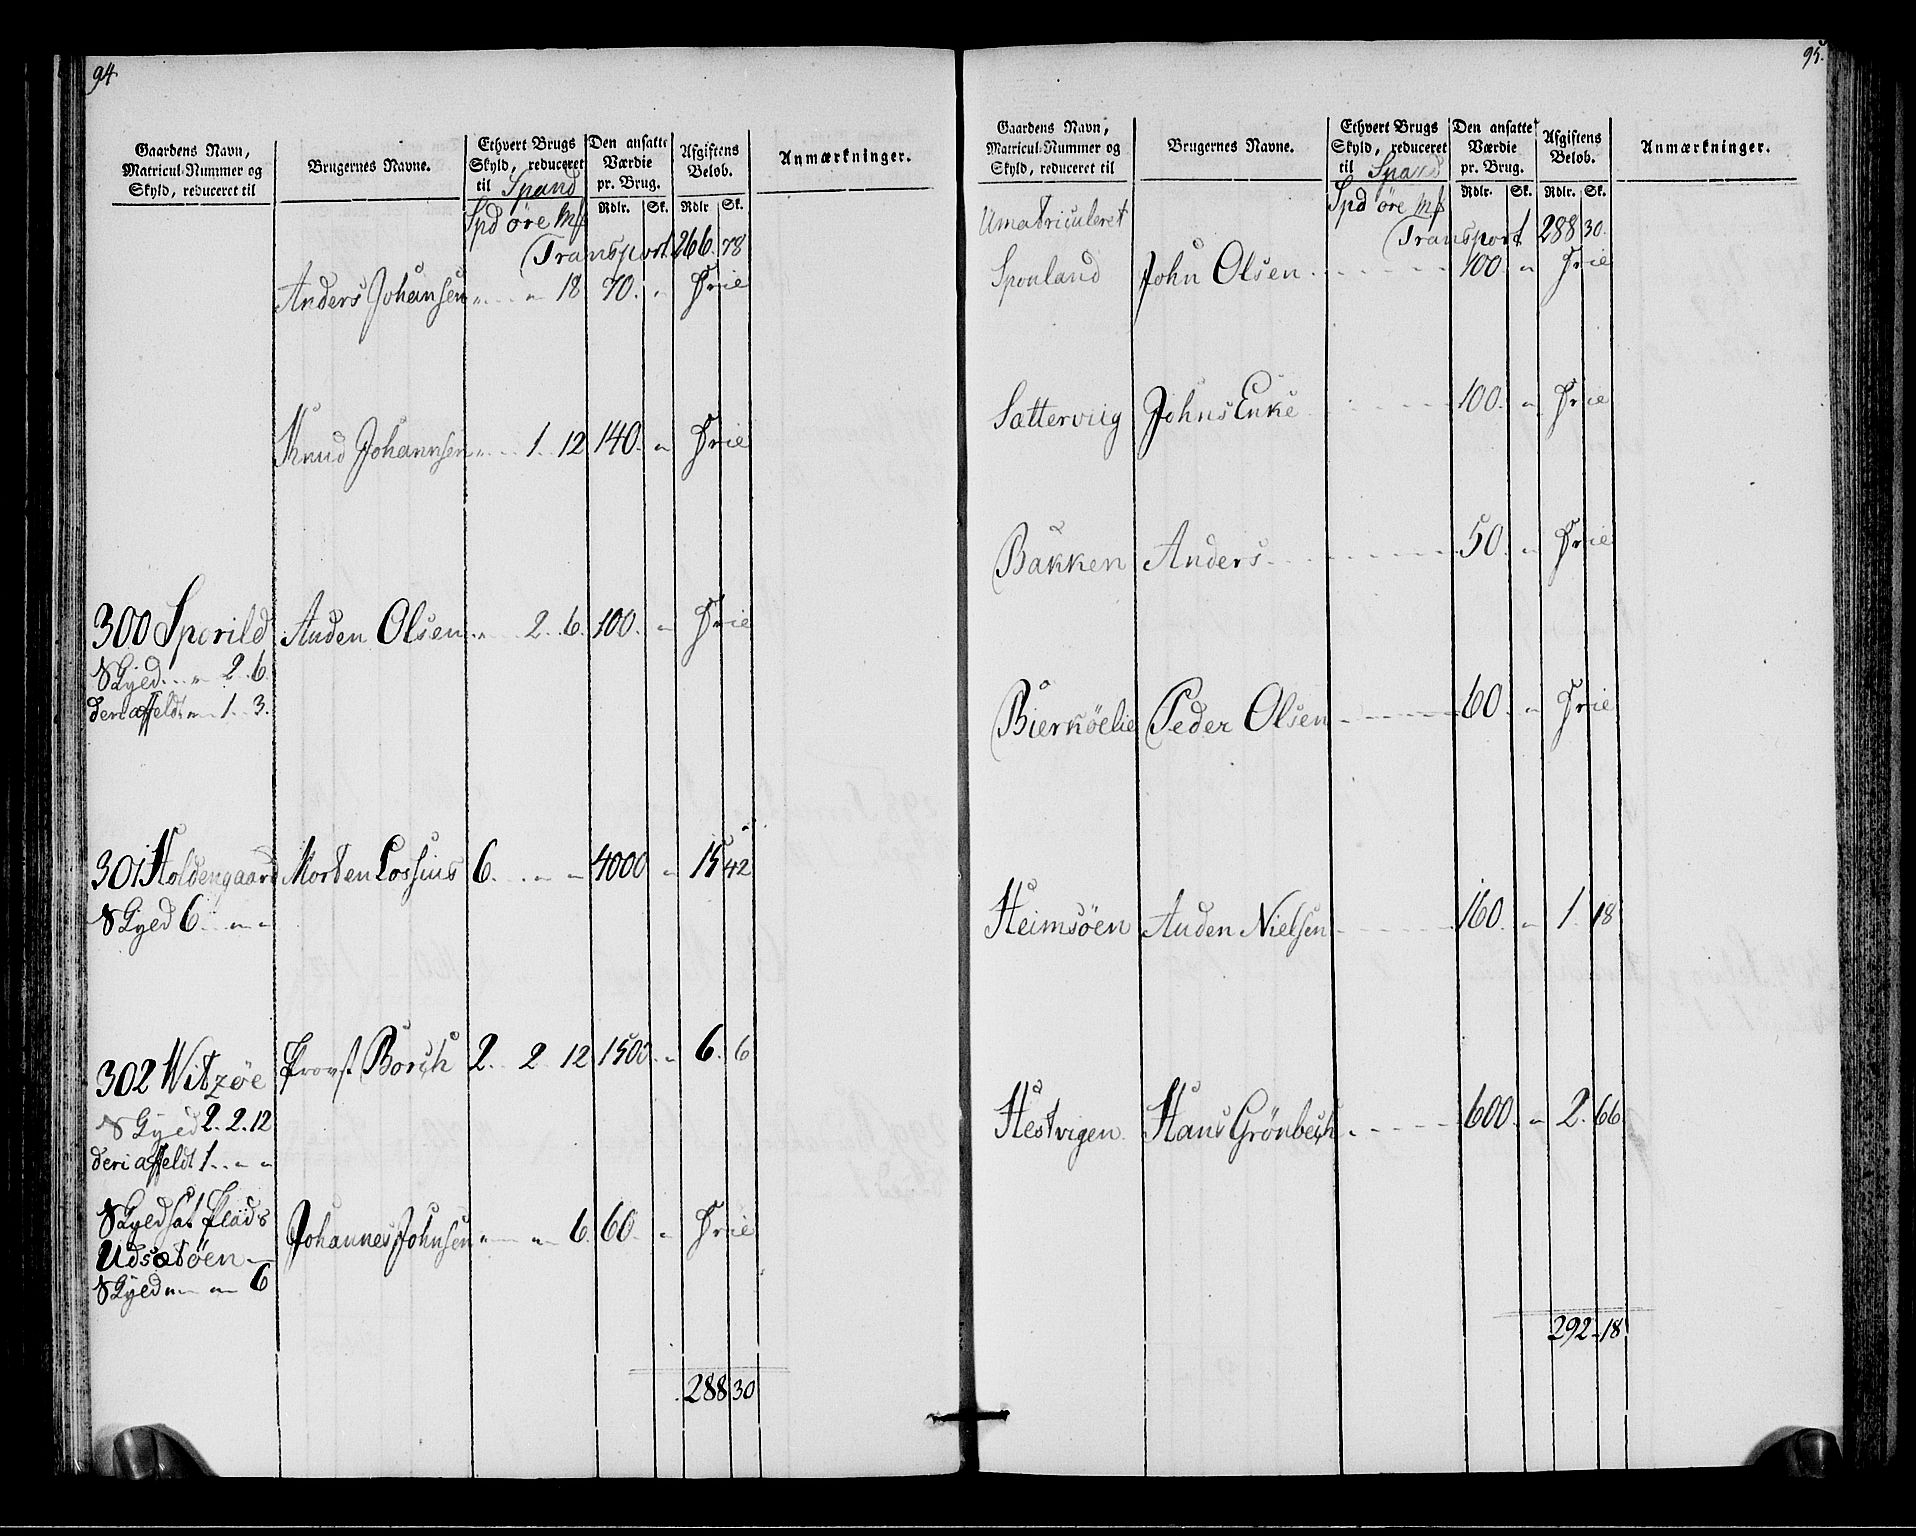 94
Gaardens Navn, Matricul-Nummer og Skyld, reduceret til
Brugernes Navne.
Ethvert Brugs Skyld, reduceret til Spand
Den ansatte Værdie pr. Brug.
Afgiftens Beløb.
Anmærkninger.
Spd öre Mk
Rdlr. Sk. Rdlr Sk.
Transport 266. 78
Anders Johansen " " 18 70. " Frie
Knud Johannsen " 1. 12 140. " Frie
300 Sporild Auden Olsen " 2. 6. 100. " Frie
Skyld " 2. 6.
deri affeldt " 1. 3.
301 Holdengaard Morten Lossius 6. " " 4000 " 15 42
Skyld 6. " "
302 Witzøe Provst Borch 2. 2 12 1500. " 6. 6
Skyld 2. 2. 12
deri affeldt 1. " "
Skyldsat Plads
Udsætöen Johannes Johnsen " " 6. 60. " Frie
Skyld " " 6
288 30
95.
Gaardens Navn, Matricul-Nummer og Skyld, reduceret til
Brugernes Navne.
Ethvert Brugs Skyld, reduceret til Spand
Den ansatte Værdie pr. Brug.
Afgiftens Beløb.
Anmærkninger.
Spd öre Mk
Rdlr. Sk. Rdlr. Sk.
Umatriculeret
Transport 288 30.
Sponland John Olsen 100 " Frie
Sætterviig Johns Enke 100. " Frie
Bakken Anders 50. " Frie
Bierköelie Peder Olsen 60. " Frie
Heimsöen Auden Nielsen 160. " 1. 18
Hestvigen Hans Grönbech 600. " 2. 66
292. 18